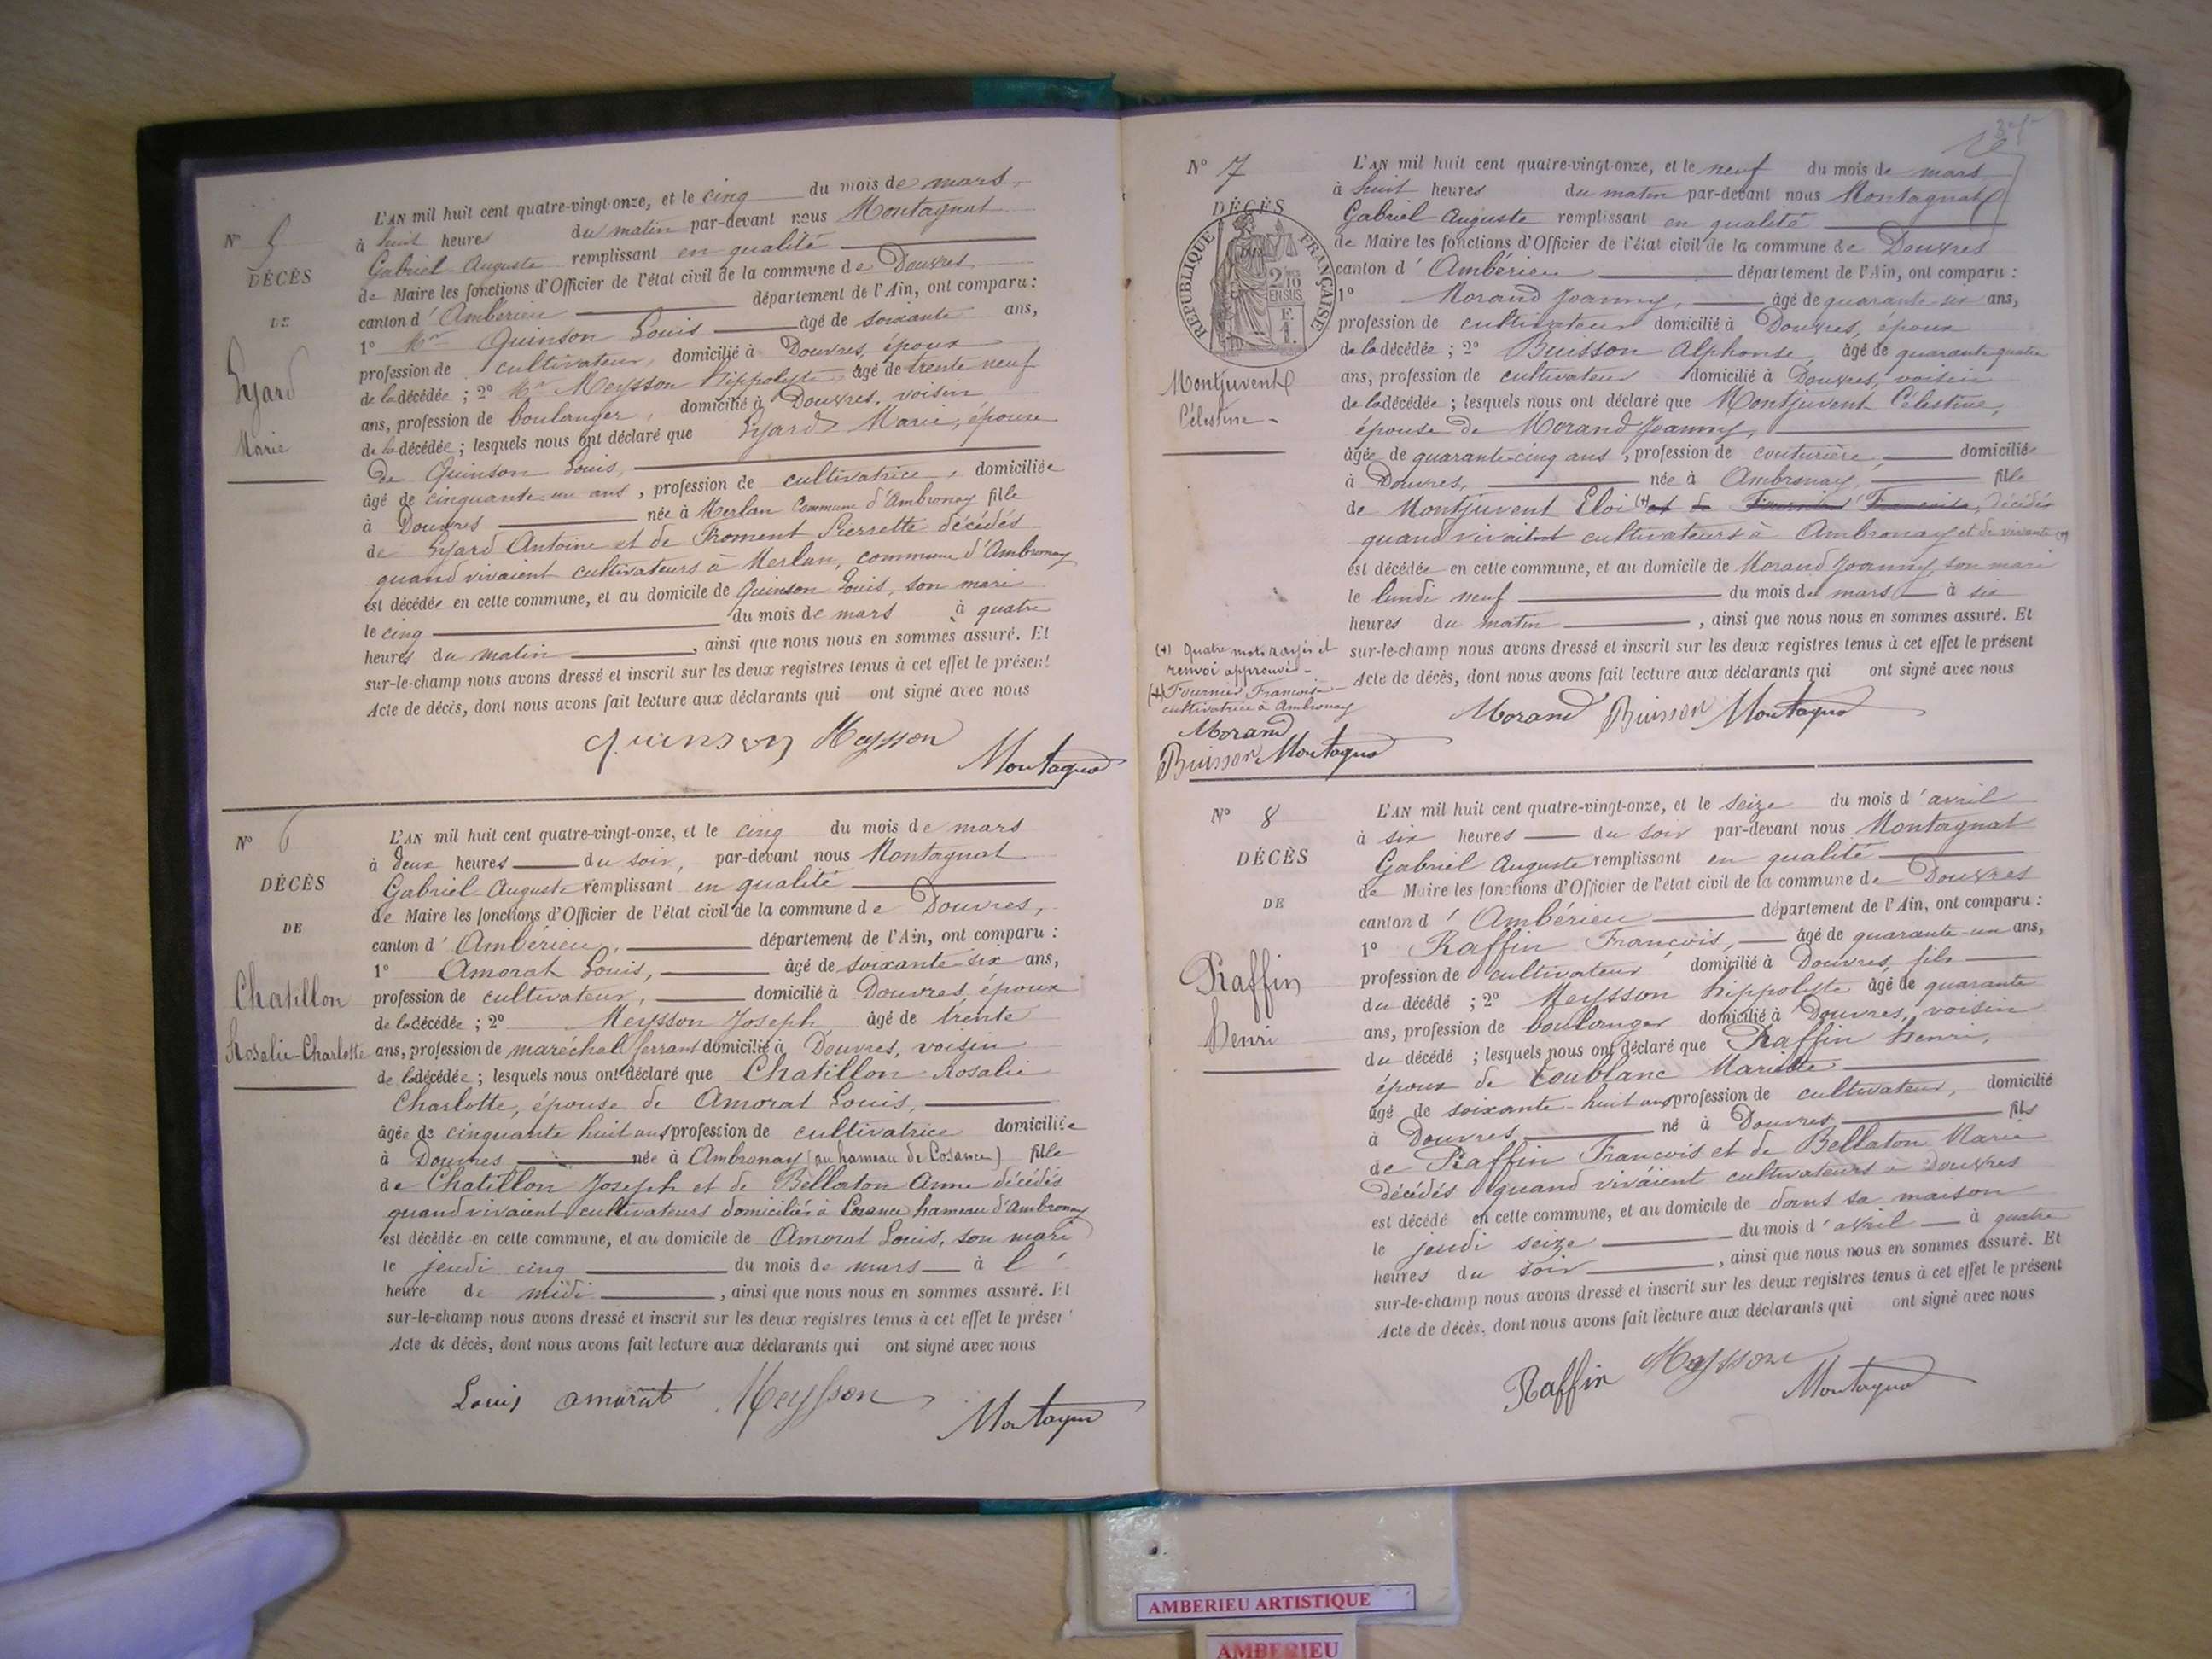 N° 5
DÉCÈS
DE
Marie
L'AN mil huit cent quatre-vingt-onze, et le cinq du mois de mars
à huit heures du matin par-devant nous Montagnat
Gabriel-Auguste remplissant en qualité
de Maire les fonctions d'Officier de l'état civil de la commune de Douvres
canton d'Ambérieu département de l'Ain, ont comparu :
1° Mr Quinson Louis âgé de soixante ans,
profession de cultivateur, domicilié à Douvres, époux
de la décédée ; 2° Mr Meysson hippolyte âgé de trente neuf
ans, profession de boulanger, domicilié à Douvres, voisin
de la décédée ; lesquels nous ont déclaré que Marie, épouse
de Quinson Louis,
âgé de cinquante un ans, profession de cultivatrice, domiciliée
à Douvres née à Merlan Commune d'Ambronay fille
de Antoine et de Froment Pierrette décédés
quand vivaient cultivateurs à Merlan, commune d'Ambronay
est décédée en cette commune, et au domicile de Quinson Louis, son mari
le cinq du mois de mars à quatre
heures du matin, ainsi que nous nous en sommes assuré. Et
sur-le-champ nous avons dressé et inscrit sur les deux registres tenus à cet effet le présent
Acte de décès, dont nous avons fait lecture aux déclarants qui ont signé avec nous
Quinson Meysson
Montagnat
N° 6
DÉCÈS
DE
Chatillon
Rosalie-Charlotte
L'AN mil huit cent quatre-vingt-onze, et le cinq du mois de mars
à deux heures du soir, par-devant nous Montagnat
Gabriel-Auguste remplissant en qualité
de Maire les fonctions d'Officier de l'état civil de la commune de Douvres,
canton d'Ambérieu, département de l'Ain, ont comparu :
1° Amorat Louis, âgé de soixante six ans,
profession de cultivateur, domicilié à Douvres, époux
de la décédée ; 2° Meysson Joseph âgé de trente
ans, profession de maréchal ferrant domicilié à Douvres, voisin
de la décédée ; lesquels nous ont déclaré que Chatillon Rosalie
Charlotte, épouse de Amorat Louis,
âgée de cinquante huit ans profession de cultivatrice domiciliée
à Douvres née à Ambronay (au hameau de Cosance) fille
de Chatillon Joseph et de Bellaton Anne décédés
quand vivaient cultivateurs domiciliés à Cosance hameau d'Ambronay
est décédée en cette commune, et au domicile de Amorat Louis, son mari
le jeudi cinq du mois de mars à l'
heure de midi, ainsi que nous nous en sommes assuré. Et
sur-le-champ nous avons dressé et inscrit sur les deux registres tenus à cet effet le présent
Acte de décès, dont nous avons fait lecture aux déclarants qui ont signé avec nous
Louis amorat Meysson
Montagnat
N° 7
DÉCÈS
RÉPUBLIQUE FRANÇAISE
2/10
EN SUS
Montjuvent
Célestine
L'AN mil huit cent quatre-vingt-onze, et le neuf du mois de mars
à huit heures du matin par-devant nous Montagnat
Gabriel-Auguste remplissant en qualité
de Maire les fonctions d'Officier de l'état civil de la commune de Douvres
canton d'Ambérieu département de l'Ain, ont comparu :
1° Morand Joanny, âgé de quarante six ans,
profession de cultivateur domicilié à Douvres, époux
de la décédée ; 2° Buisson Alphonse, âgé de quarante quatre
ans, profession de cultivateur domicilié à Douvres, voisin
de la décédée ; lesquels nous ont déclaré que Montjuvent Célestine,
épouse de Morand Joanny,
âgée de quarante-cinq ans, profession de couturière, domicilié
à Douvres, née à Ambronay, fille
de Montjuvent Eloi (+) et de Fournier Françoise, décédé
quand vivait cultivateurs à Ambronay et de vivante (+)
est décédée en cette commune, et au domicile de Morand Joanny, son mari
le lundi neuf du mois de mars à six
heures du matin, ainsi que nous nous en sommes assuré. Et
sur-le-champ nous avons dressé et inscrit sur les deux registres tenus à cet effet le présent
Acte de décès, dont nous avons fait lecture aux déclarants qui ont signé avec nous
Morand Buisson Montagnat
(+) Quatre mots rayés et
renvoi approuvé
(+) Fournier Françoise
cultivatrice à Ambronay
Morand
Buisson Montagnat
N° 8
DÉCÈS
DE
Raffin
henri
L'AN mil huit cent quatre-vingt-onze, et le seize du mois d'avril
à six heures du soir par-devant nous Montagnat
Gabriel Auguste remplissant en qualité
de Maire les fonctions d'Officier de l'état civil de la commune de Douvres
canton d'Ambérieu département de l'Ain, ont comparu :
1° Raffin François, âgé de quarante-un ans,
profession de cultivateur domicilié à Douvres, fils
du décédé ; 2° Meysson hippolyte âgé de quarante
ans, profession de boulanger domicilié à Douvres, voisin
du décédé ; lesquels nous ont déclaré que Raffin henri,
époux de Coublanc Mariette
âgé de soixante-huit ans profession de cultivateur, domicilié
à Douvres, né à Douvres fils
de Raffin Francois et de Bellaton Marie
décédés quand vivaient cultivateurs à Douvres
est décédé en cette commune, et au domicile de dans sa maison
le jeudi seize du mois d'avril à quatre
heures du soir, ainsi que nous nous en sommes assuré. Et
sur-le-champ nous avons dressé et inscrit sur les deux registres tenus à cet effet le présent
Acte de décès, dont nous avons fait lecture aux déclarants qui ont signé avec nous
Raffin Meysson
Montagnat
AMBERIEU ARTISTIQUE
AMBERIEU